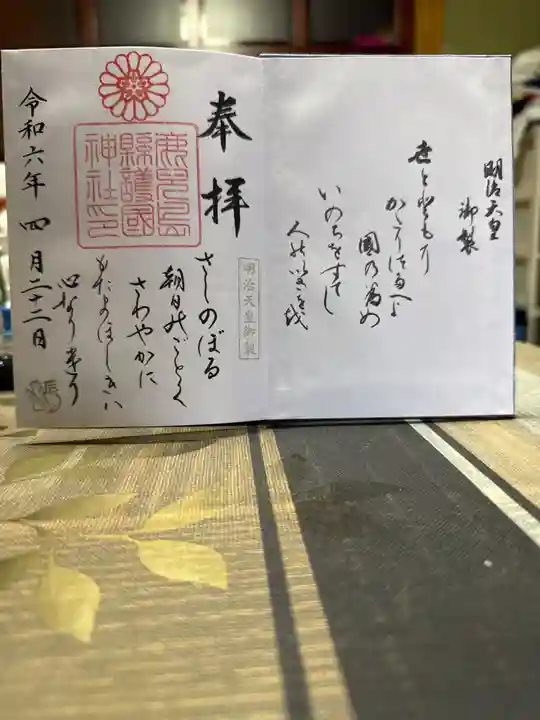 明治天皇
御製
世とともに
かたりつたへよ
國乃為め
いのちをすてし
人能いさを越
奉拝
明治天皇御製
さしのぼる
朝日能ごとく
さわやかに
もたまほしきハ
心なりけり
鹿児島
縣護國
神社印
令和六年 四月二十二日